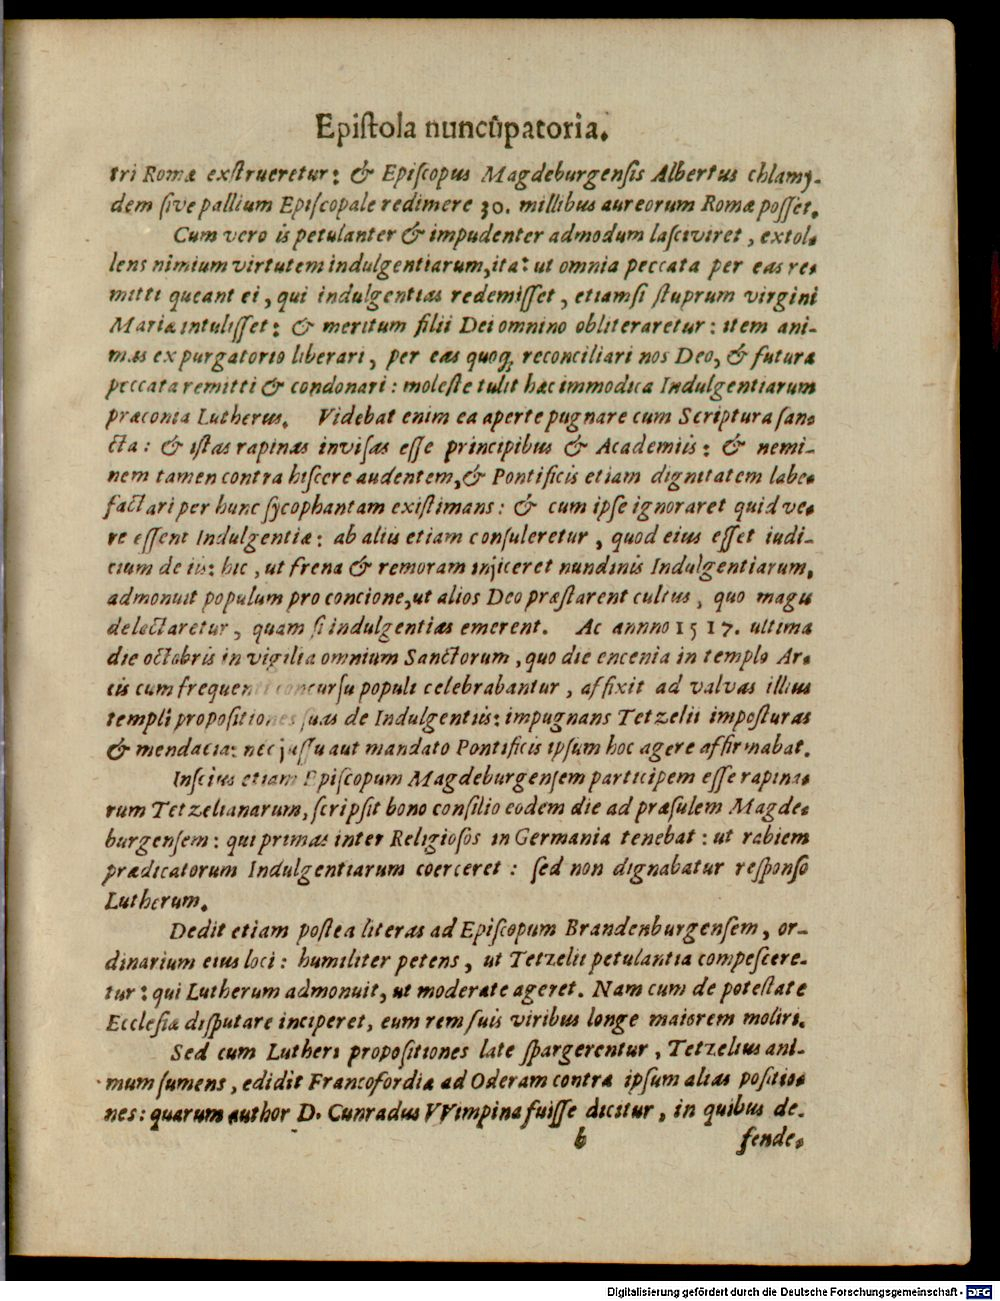 Epiſtola nuncûpatoria.
tri Romæ exſtrueretur: & Epiſcopus Magdeburgenſis Albertus chlamy-
dem ſive pallium Epiſcopale redimere 30. millibus aureorum Romæ poſſet.
Cum vero is petulanter & impudenter admodum laſciviret, extol-
lens nimium virtutem indulgentiarum, ita: ut omnia peccata per eas re-
mitti queant ei, qui indulgentias redemiſſet, etiamſi ſtuprum virgini
Mariæ intuliſſet: & meritum filii Dei omnino obliteraretur: item ani-
mas ex purgatorio liberari, per eas quoq; reconciliari nos Deo, & futura
peccata remitti & condonari: moleſte tulit hæc immodica Indulgentiarum
præconia Lutherus. Videbat enim ea aperte pugnare cum Scriptura ſan-
cta: & iſtas rapinas inviſas eſſe principibus & Academiis: & nemi-
nem tamen contra hiſcere audentem, & Pontificis etiam dignitatem labe-
factari per hunc ſycophantam exiſtimans: & cum ipſe ignoraret quid ve-
re eſſent Indulgentiæ: ab aliis etiam conſuleretur, quod eius eſſet iudi-
cium de iis: hic, ut frena & remoram injiceret nundinis Indulgentiarum,
admonuit populum pro concione, ut alios Deo præſtarent cultus, quo magis
delectaretur, quam ſi indulgentias emerent. Ac annno 1517. ultima
die octobris in vigilia omnium Sanctorum, quo die encenia in templo Ar-
cis cum frequenti concurſu populi celebrabantur, affixit ad valvas illius
templi propoſitiones ſuas de Indulgentiis: impugnans Tetzelii impoſturas
& mendacia: nec juſſu aut mandato Pontificis ipſum hoc agere affirmabat.
Inſcius etiam Epiſcopum Magdeburgenſem participem eſſe rapina-
rum Tetzelianarum, ſcripſit bono conſilio eodem die ad præſulem Magde-
burgenſem: qui primas inter Religioſos in Germania tenebat: ut rabiem
prædicatorum Indulgentiarum coerceret: ſed non dignabatur reſponſo
Lutherum.
Dedit etiam poſtea literas ad Epiſcopum Brandenburgenſem, or-
dinarium eius loci: humiliter petens, ut Tetzelii petulantia compeſcere-
tur: qui Lutherum admonuit, ut moderate ageret. Nam cum de poteſtate
Eccleſiæ diſputare inciperet, eum rem ſuis viribus longe maiorem moliri.
Sed cum Lutheri propoſitiones late ſpargerentur, Tetzelius ani-
mum ſumens, edidit Francofordiæ ad Oderam contra ipſum alias poſitio-
nes: quarum author D. Cunradus VVimpina fuiſſe dicitur, in quibus de-
b fende-
Digitalisierung gefördert durch die Deutsche Forschungsgemeinschaft - DFG